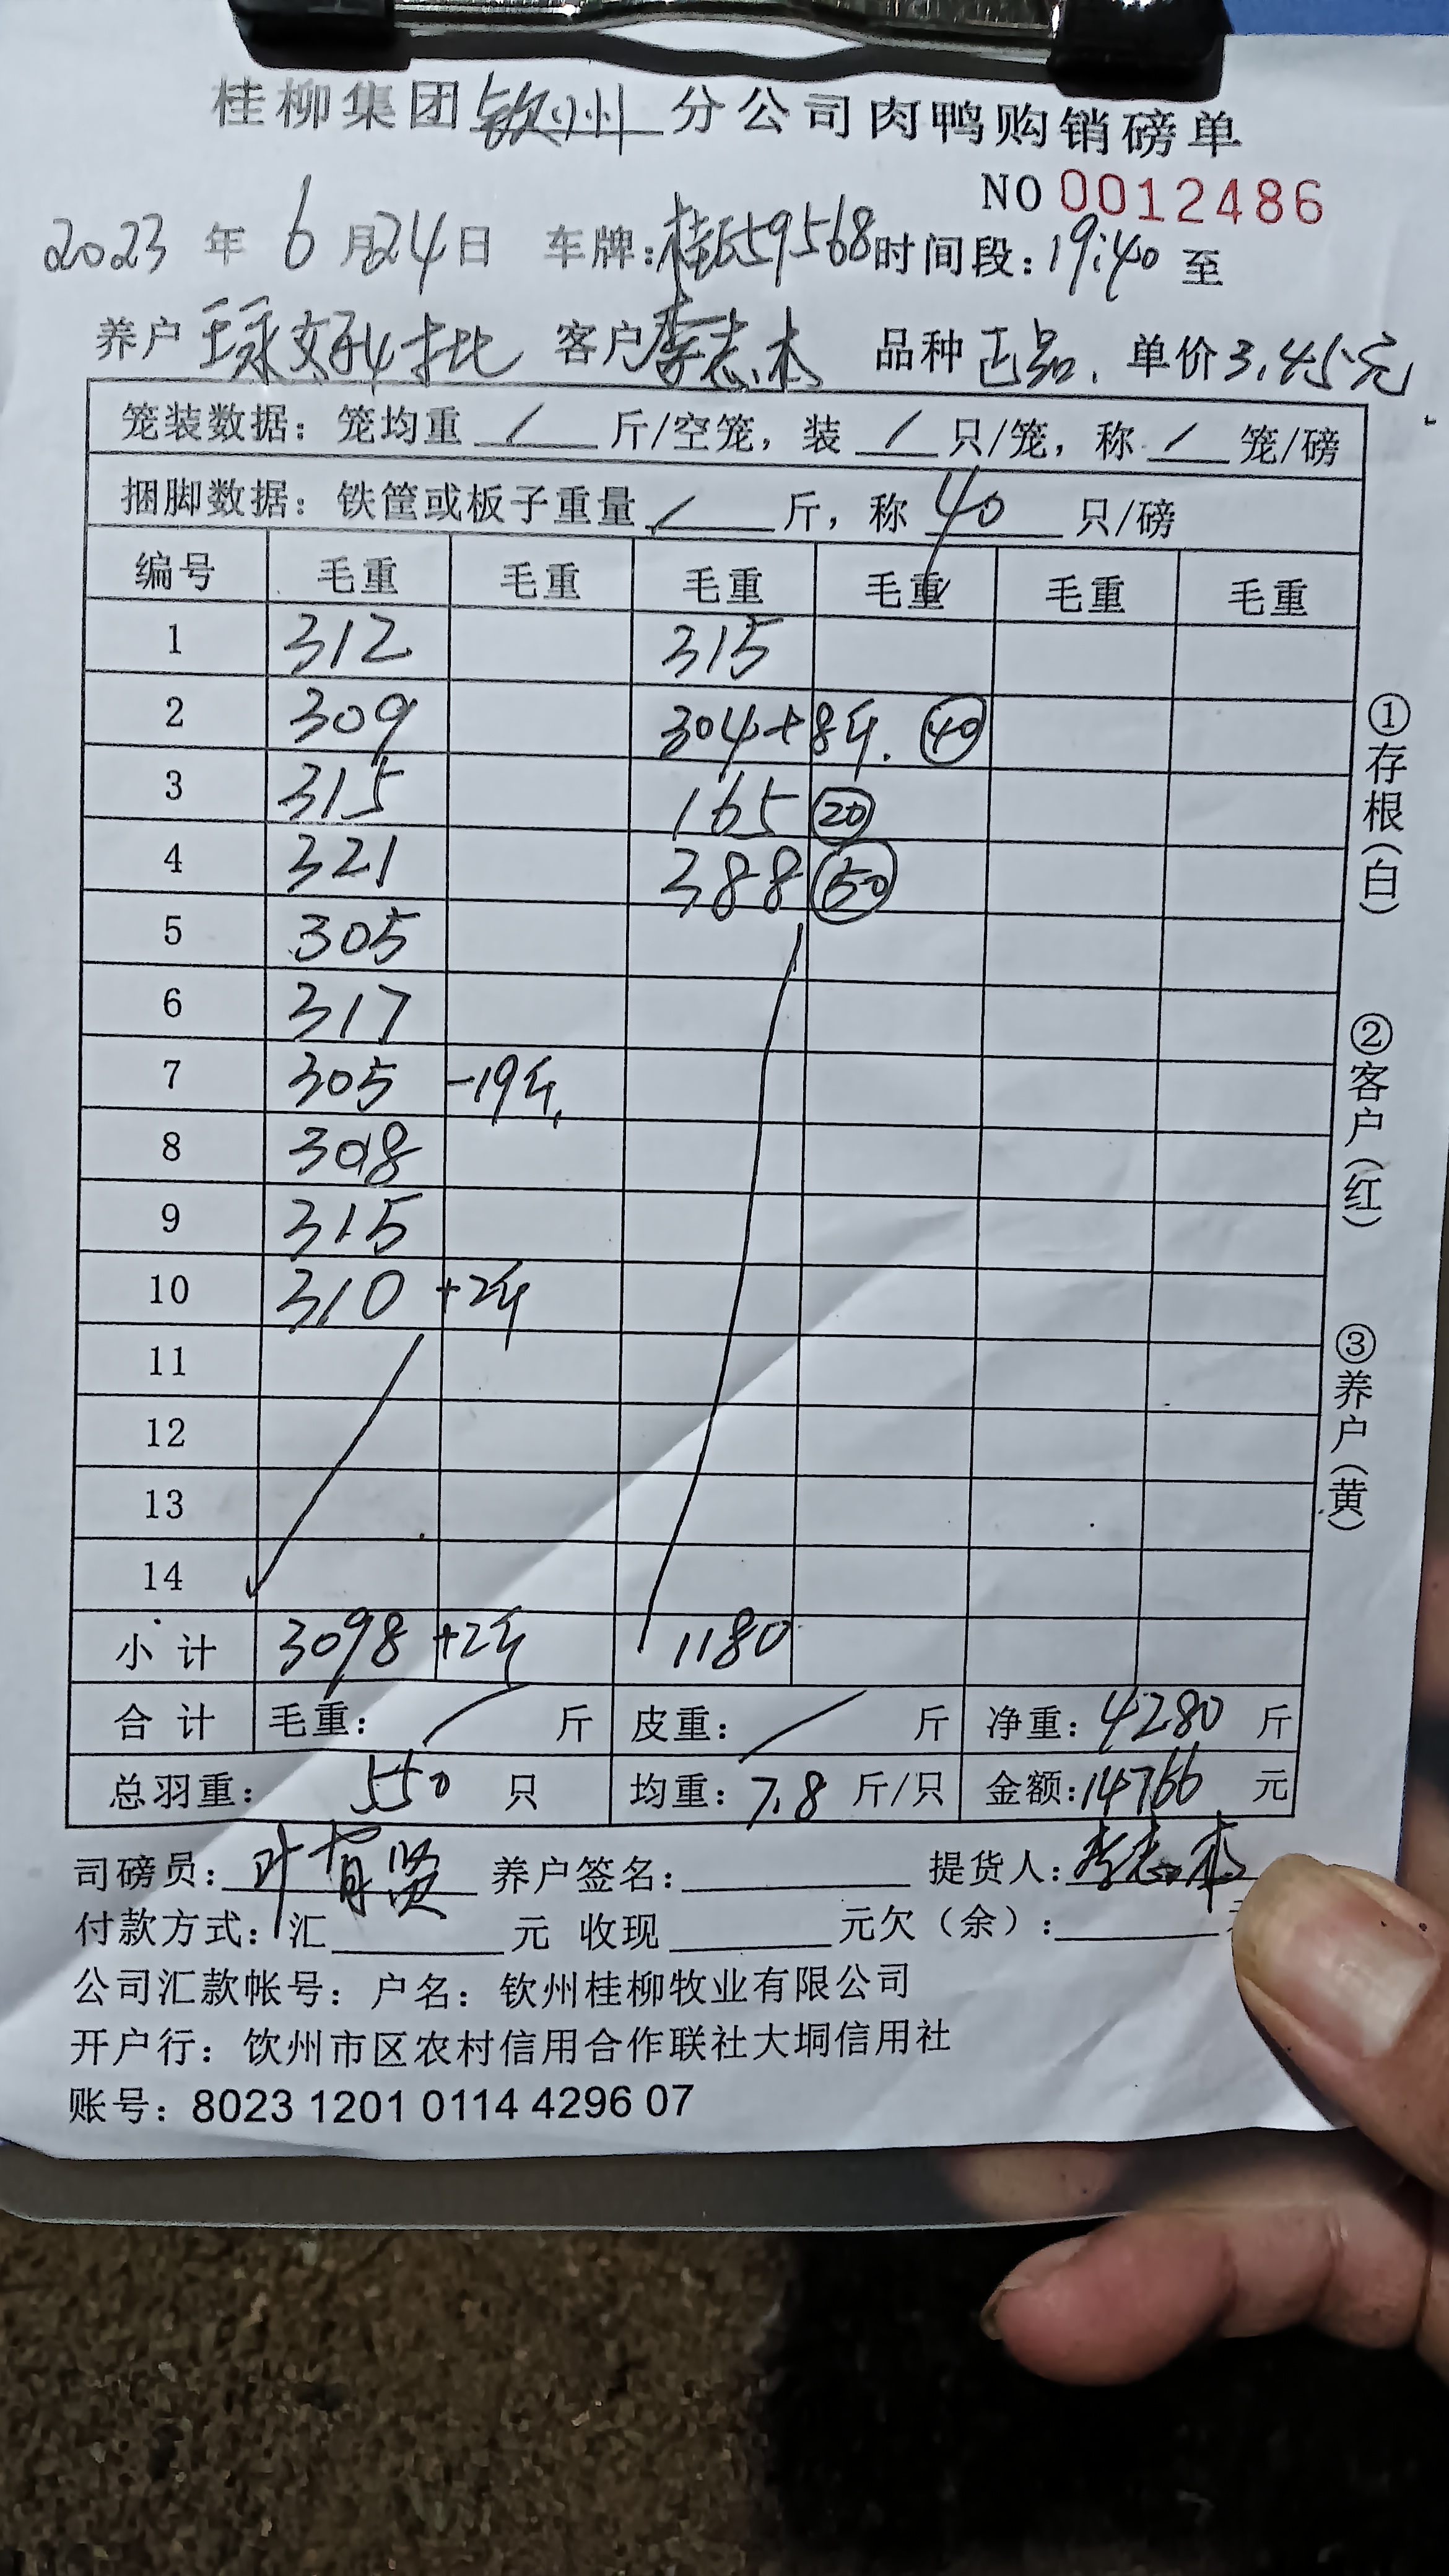 桂柳集团钦州分公司肉鸭购销磅单
NO 0012486
2023年6月24日 车牌:桂E59568时间段:19:40至
养户 客户李志本 品种正品. 单价3.45元
笼装数据:笼均重/斤/空笼,装/只/笼,称/笼/磅
捆脚数据:铁筐或板子重量/斤,称40只/磅
编号 毛重 毛重 毛重 毛重 毛重 毛重
1 312 315
2 309 304+8斤. 40
3 315 165 20
4 321 388 50
5 305
6 317
7 305 -19斤.
8 308
9 315
10 310 +2斤
11
12
13
14
小计 3098 +2斤 1180
合计 毛重:/斤 皮重:/斤 净重:4280斤
总羽重:550只 均重:7.8斤/只 金额:14766元
司磅员:叶育贤 养户签名: 提货人:李志本
付款方式:汇 元 收现 元欠(余):
公司汇款帐号:户名:钦州桂柳牧业有限公司
开户行:饮州市区农村信用合作联社大垌信用社
账号:8023 1201 0114 4296 07
①存根(白)
②客户(红)
③养户(黄)